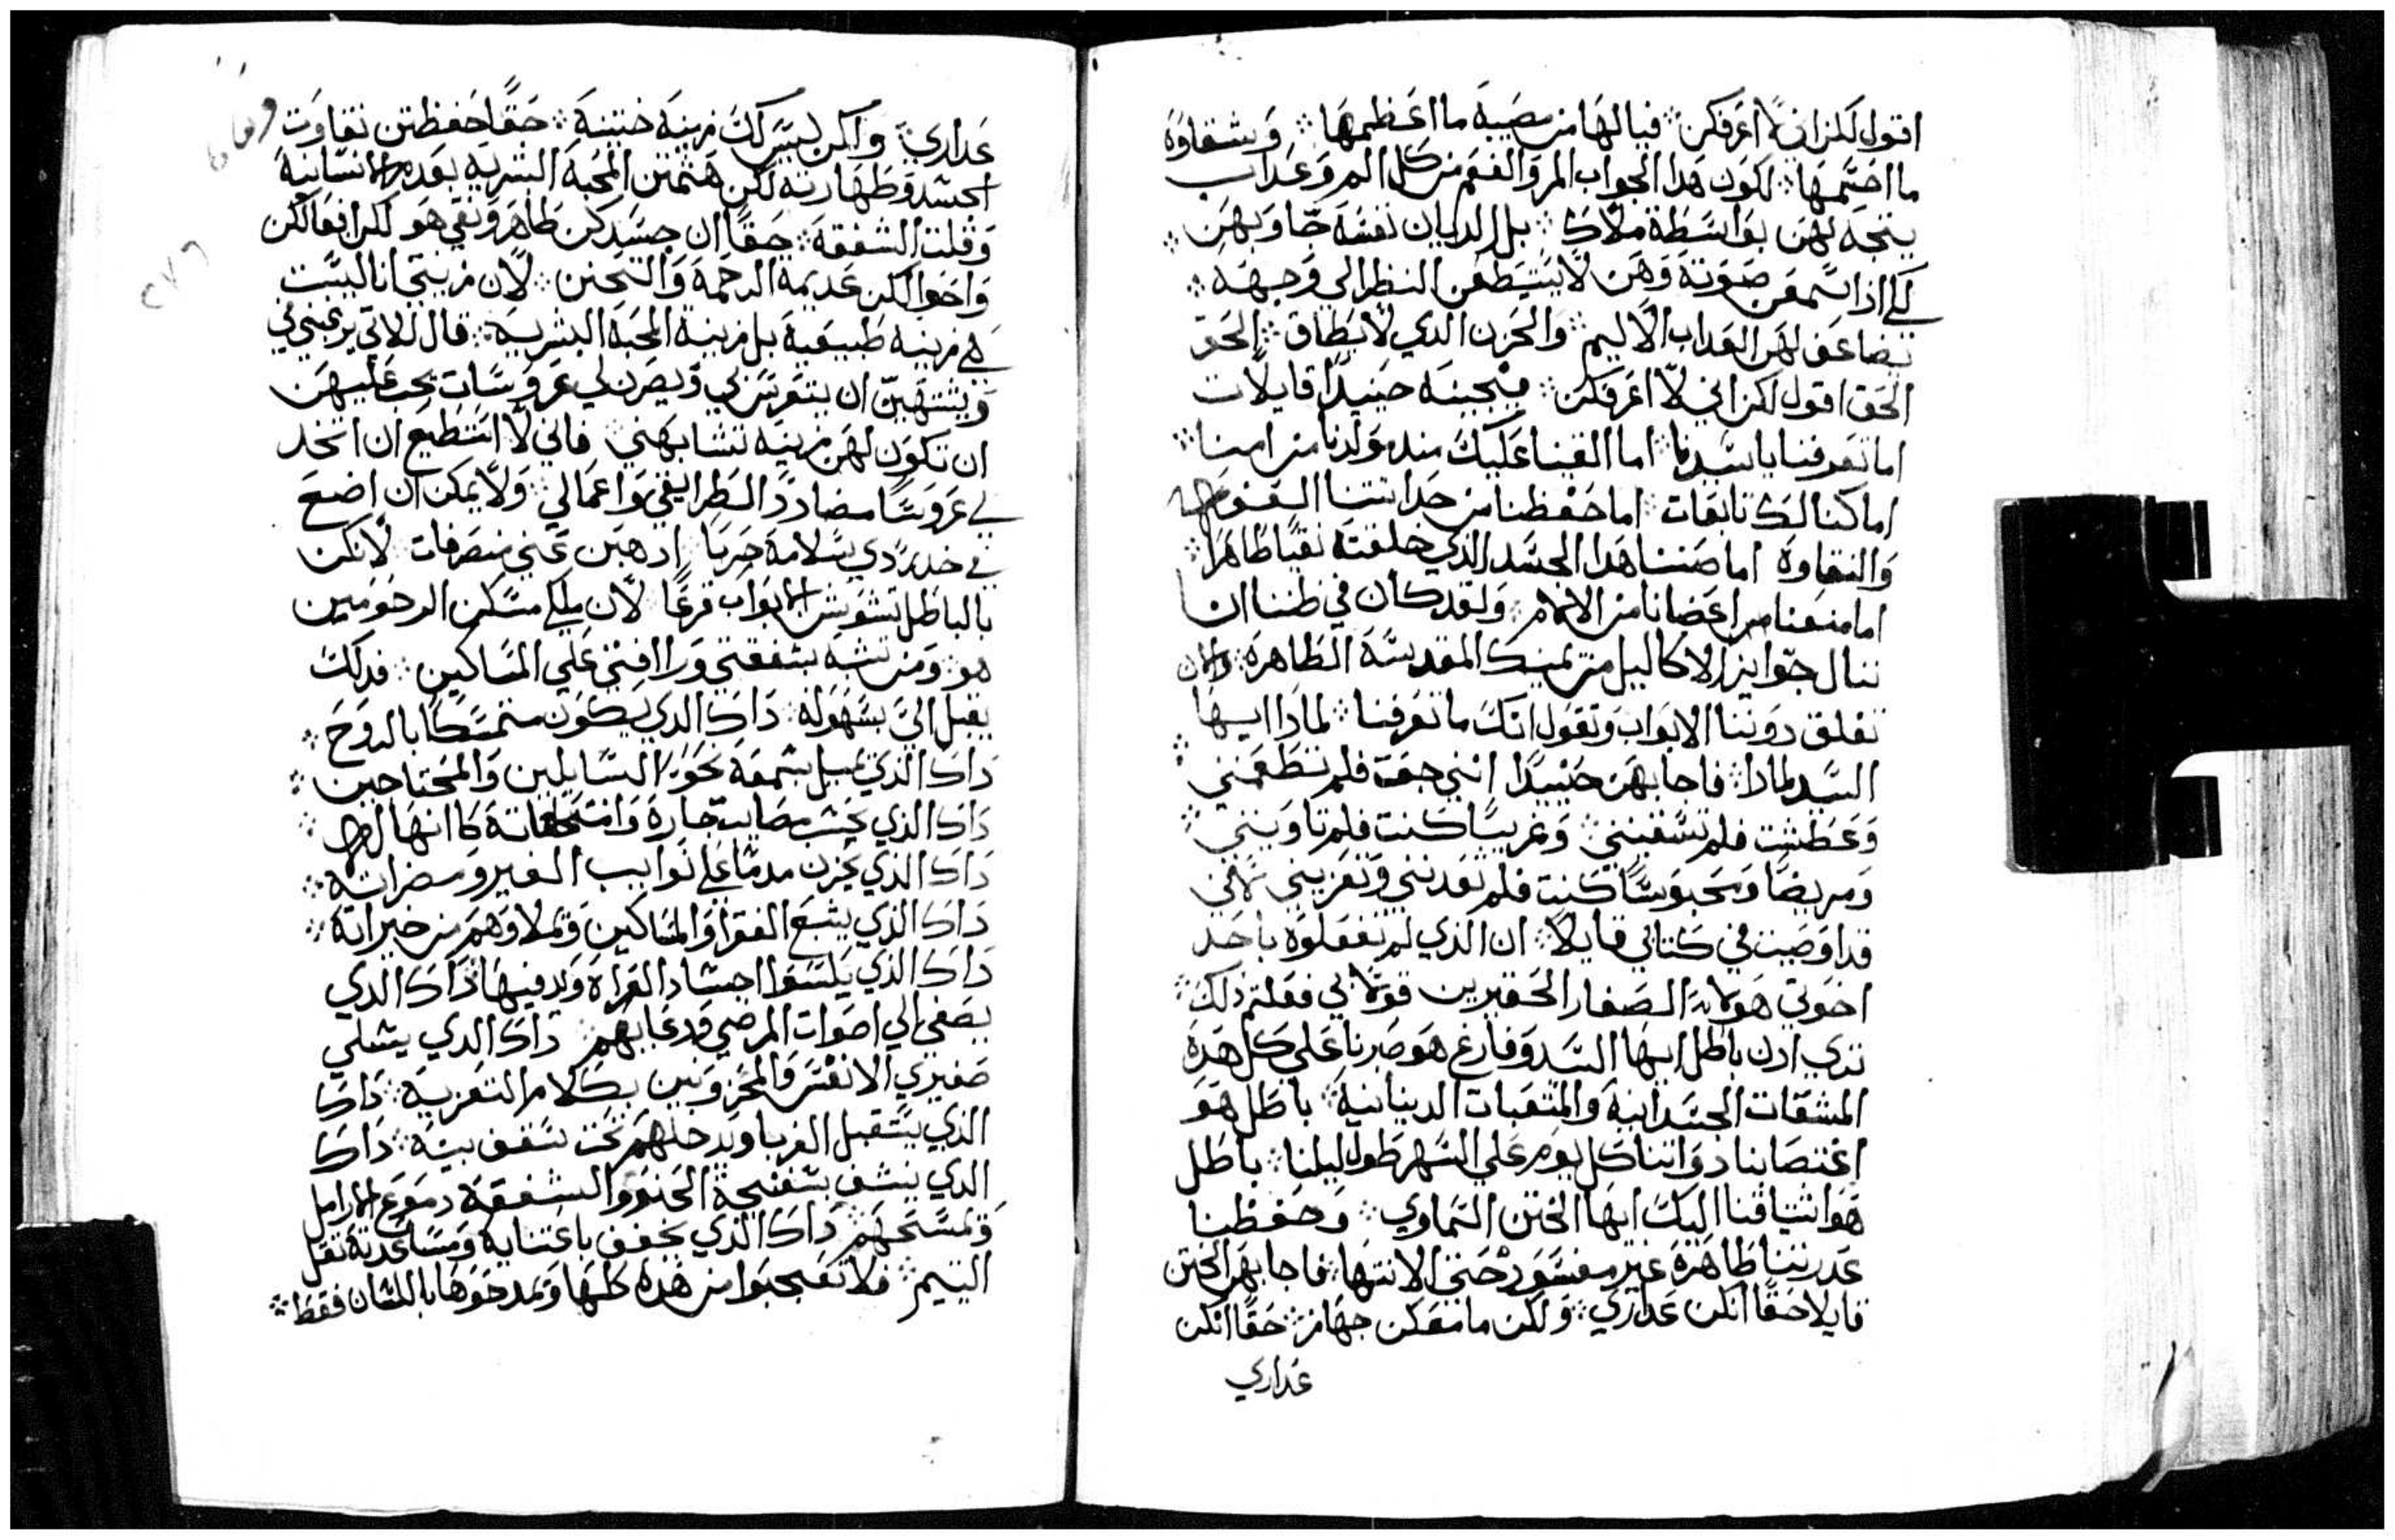 اقول لكن اني لا اعرفكن ∴ فيا لها من مصيبة ما اعظمها ∴ وشقاوة
ما اجسمها ∴ لكون هدا الجواب المر والفقم من كل الم وعداب
يتجه لهن بواسطة ملاك ∴ بل الديان نفسه جاوبهن ∴
لكي ادا سمعن صوته وهن لا يستطعن النظر الي وجهه ∴
تضاعف لهن العداب الاليم ∴ والحزن الدي لا يطاق ∴ الحق
الحق اقول لكن اني لا اعرفكن ∴ فيجبنه حينيدا قايلات
اما تعرفنا يا سيدنا ∴ اما القينا عليك مند مولدنا من امنا ∴
اما كنا لك تابعات ∴ اما حفظنا من حداثتنا الصوم
والنقاوة اما صننا هدا الجسد الذي خلقته نقيا طاهرا ∴
اما منعنا من اعضانا من الاثام ∴ ولقد كان في ظننا ان
ننال جوايز الاكاليل من يمينك المقدسة الطاهرة والان
تغلق دوننا الابواب وتقول انك ما تعرفنا ∴ لمادا ايها
السيد لمادا ∴ فاجابهن حينيدا انني جعت فلم تطعمنني ∴
وعطشت فلم تسقينني ∴ وغريبا كنت فلم تاوينني ∴
ومريضا ومحبوسا كنت فلم تعدنني وتعزيني لاني
قد اوصيت في كتابي قايلا ∴ ان الذي لم تفعلوه باحد
اخوتي هولاء الصغار الحقيرين فولا بي فعلتم دلك ∴
تري ادن باطل ايها السيد وفارغ هو صبرنا علي كل هده
المشقات الجسدانية والمتعبات الدينانية ∴ باطل هو
اغتصابنا دواتنا كل يوم علي السهر طول ليلنا ∴ باطل
هو اشتياقنا اليك ايها الختن السماوي ∴ وحفظنا
عدرتنا طاهرة غير مفسود حتي الانتها ∴ فاجابهن الختن
قايلا حقا انكن عداري ∴ ولكن ما معكن جهاز ∴ حقا انكن
عداري
عداري ∴ واكن ليس لكن زينة ختنية ∴ حقا حفظتن نقاوت
الجسد وطهارته لكن هتمتن المحبة البشرية بعدم الانسانية
وقلت الشفقة ∴ حقا ان جسدكن طاهر ونقي هو لكن افعالكن
واحوالكن عديمة الرحمة والتحنن ∴ لان زينتي انا ليست
هي زينة طبيعية بل زينة المحبة البشرية ∴ قال للاتي يرغبن في
ويشتهين ان يتعرسن لي ويصرن لي عروسات يجب عليهن
ان تكون لهن زينة تشابهني ∴ فاني لا استطيع ان اتخد
لي عروسا مضاددا لطرايفي واعمالي ∴ ولا يمكن ان اضع
في خدر دي سلامة حربا ∴ ادهبن عني منصرفات لانكن
بالباطل تشوشن الابواب قرعا ∴ لان ملكي مسكن المرحومين
هو ∴ ومن تشبه بشفقتي ورا افتي علي المساكين ∴ فدلك
يقبل الي بسهولة ∴ داك الدي يكون متمسكا بالروح ∴
داك الذي يميل سمعه نحو السايلين والمحتاجين ∴
داك الذي يحسب مصايب جاره وامتحاناته كا انها له ∴
داك الذي يحزن مدمتا علي نوايب الغير ومضراته ∴
داك الذي يشبع الفقرا والمساكين ويملاوهم من خيراته ∴
داك الذي يلسوا اجساد العراه ويدفيها ∴ داك الذي
يصغي الي اصوات المرضي ودعابهم ∴ داك الدي يسلي
صغيري الانفس والمحزونين بكلام التعزية ∴ داك
الذي يستقبل الغربا ويدخلهم تحت سقف بيته ∴ داك
الدي ينشف بشفنجة الحنو والشفقة دموع الارامل
ويمسحهم ∴ داك الذي يخفف باعتنايه ومساعدته ثقل
اليتيم ∴ فلا تعجبوا من هده كلها وتمدحوها باللسان فقط ∴
٢٧٦